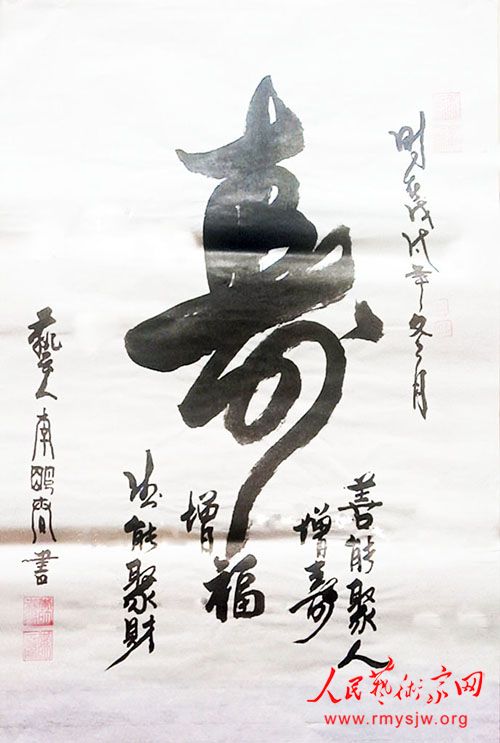 时在戊戌年冬月
寿
善能聚人
增寿
增福
德能聚財
藝人書
人民藝術家网
www.rmysjw.org